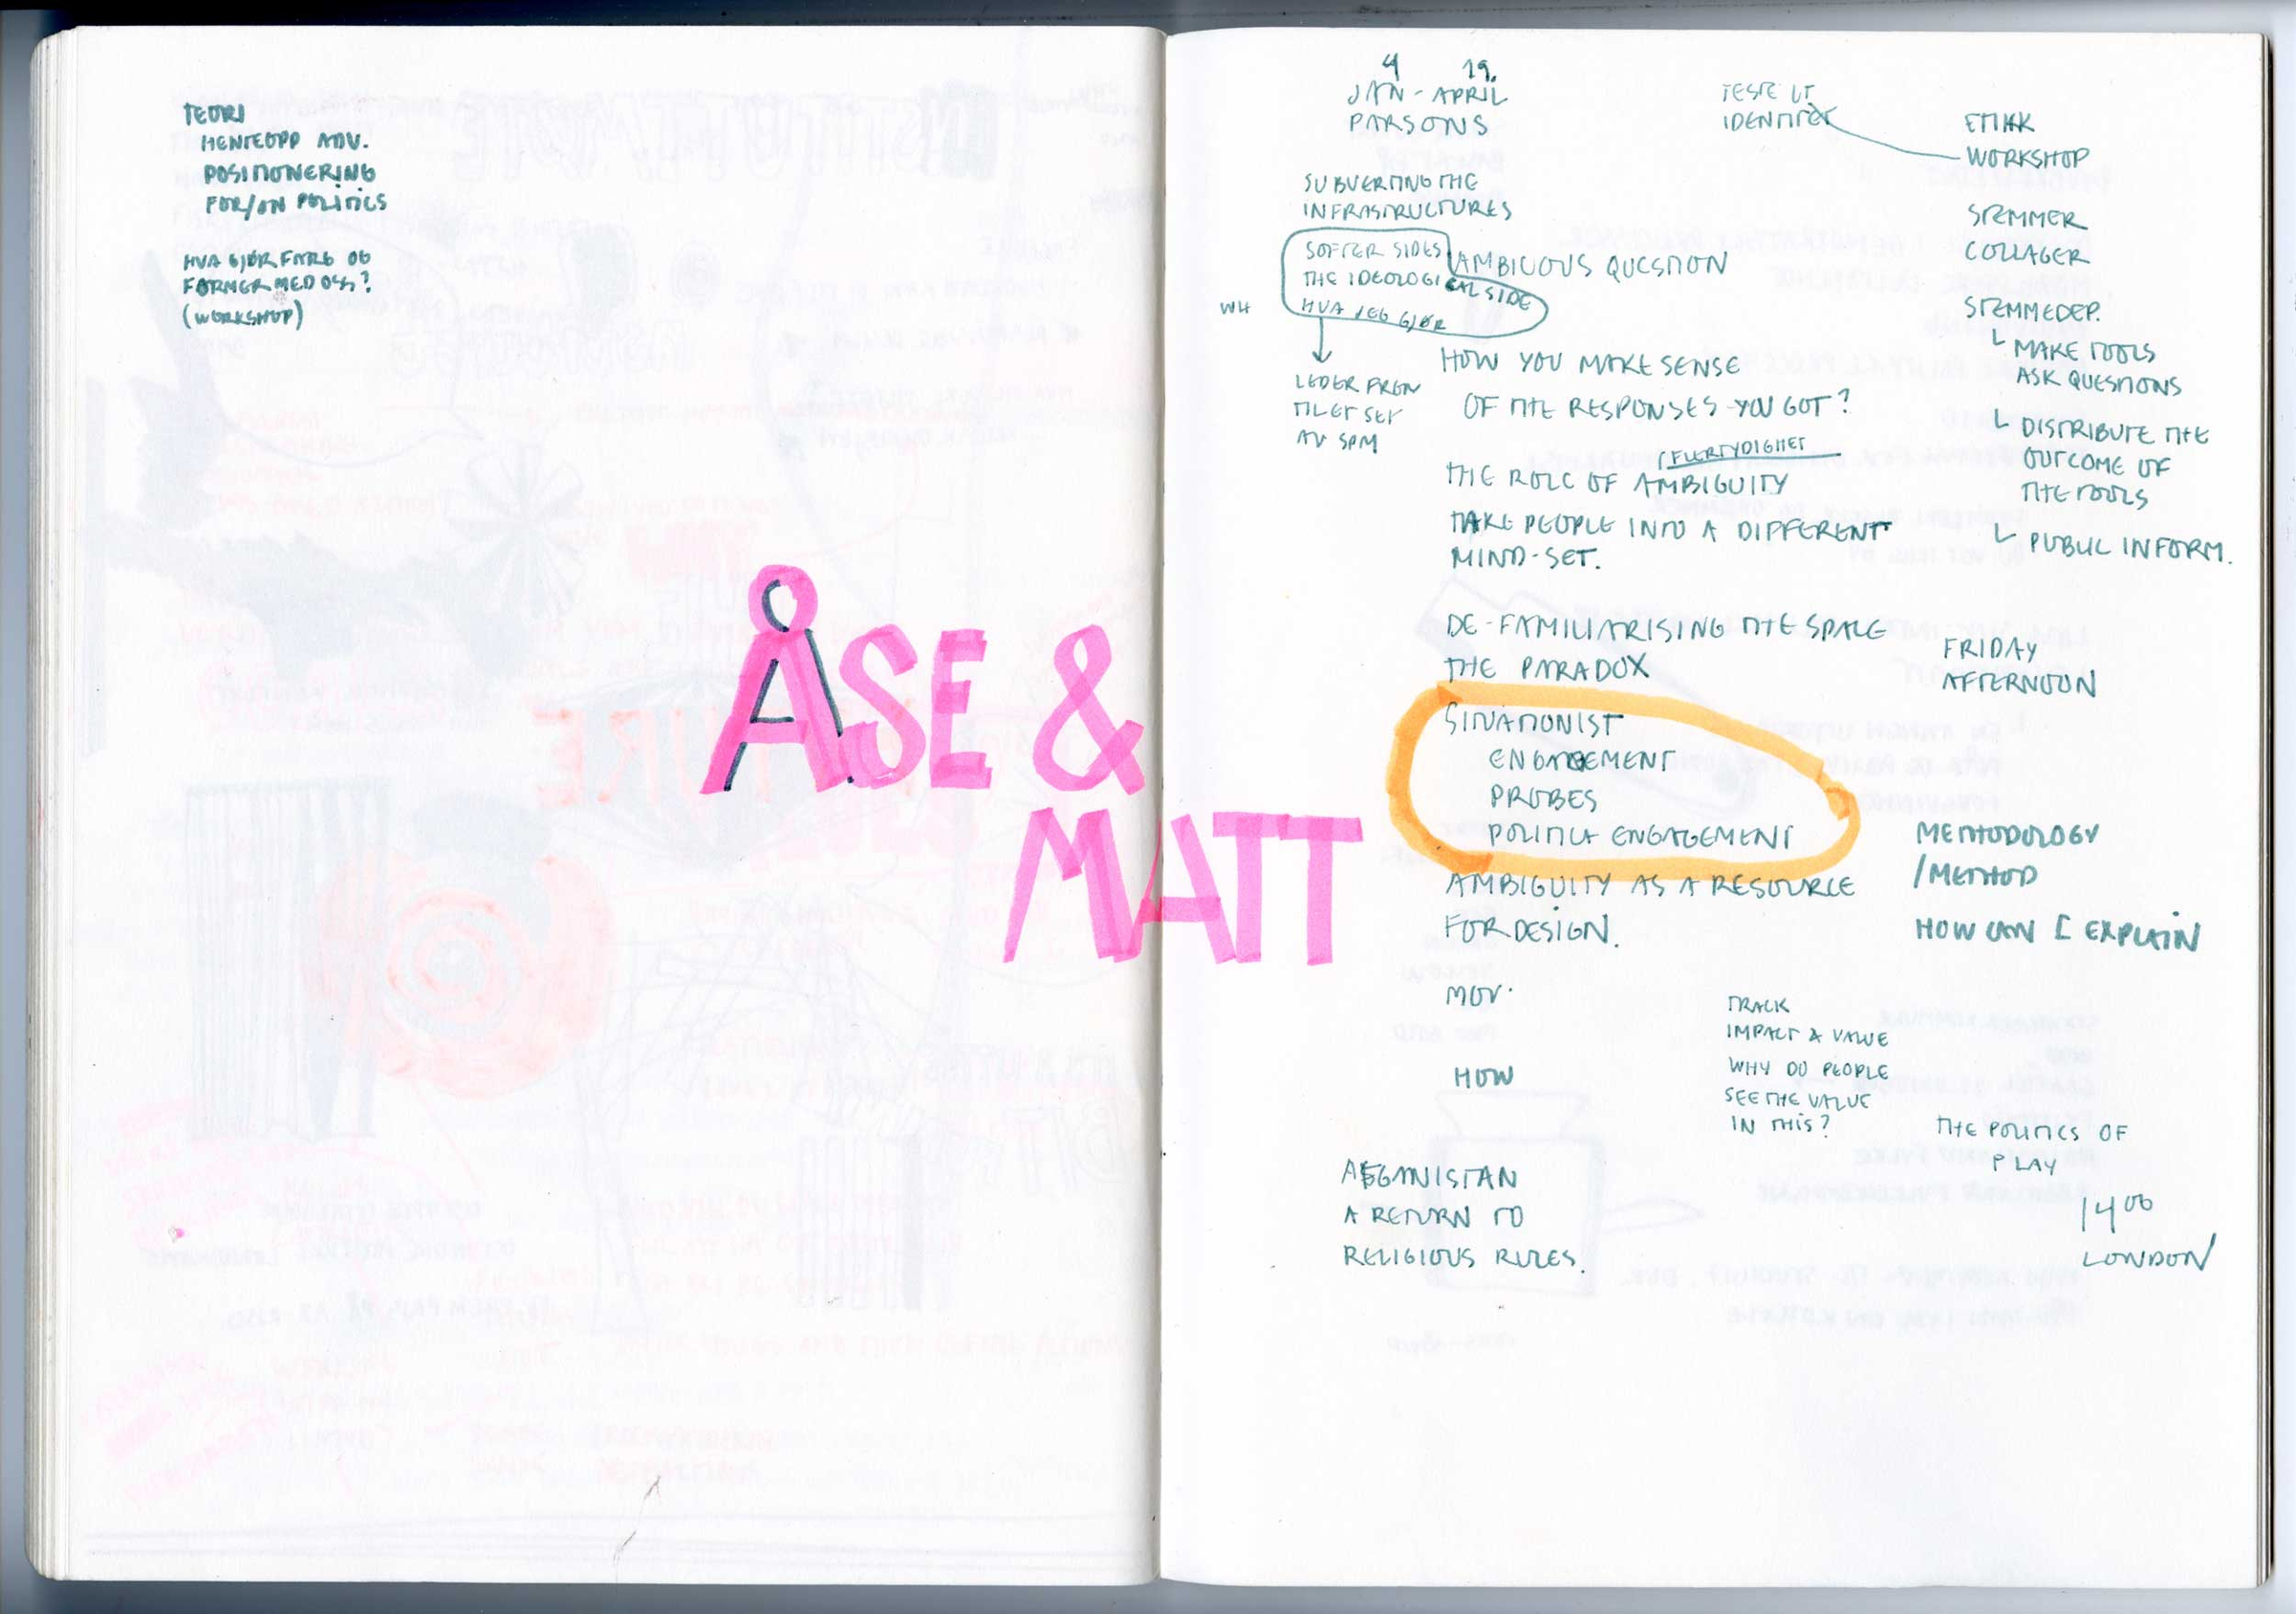 TEORI
HENTEOPP ADV.
POSITIONERING
FOR/ON POLITICS
HVA GJØR FARG OG
FORMER MED OSS?
(WORKSHOP)
ÅSE &
MATT
4 19.
JAN - APRIL
PARSONS
SUBVERTING THE
INFRASTRUCTURES
SOFTER SIDES
THE IDEOLOGICAL SIDE
HVA JEG GJØR
WH
AMBIGUOUS QUESTION
LEDER FREM
TIL ET SET
AV SPM
HOW YOU MAKE SENSE
OF THE RESPONSES YOU GOT?
FLERTYDIGHET
THE ROLE OF AMBIGUITY
TAKE PEOPLE INTO A DIFFERENT
MIND-SET.
DE-FAMILIARISING THE SPACE
THE PARADOX
SITUATIONIST
ENGAGEMENT
PROBES
POLITICA ENGAGEMENT
AMBIGUITY AS A RESOURCE
FOR DESIGN.
MOV.
HOW
AFGANISTAN
A RETURN TO
RELIGIOUS RULES.
TESTE UT
IDENTITET
ETIKK
WORKSHOP
STEMMER
COLLAGER
STEMMEDEP.
MAKE TOOLS
ASK QUESTIONS
DISTRIBUTE THE
OUTCOME OF
THE TOOLS
PUBLIC INFORM.
FRIDAY
AFTERNOON
METHODOLOGY
/METHOD
HOW CAN I EXPLAIN
TRACK
IMPACT & VALUE
WHY DO PEOPLE
SEE THE VALUE
IN THIS?
THE POLITICS OF
PLAY
14 00
LONDON